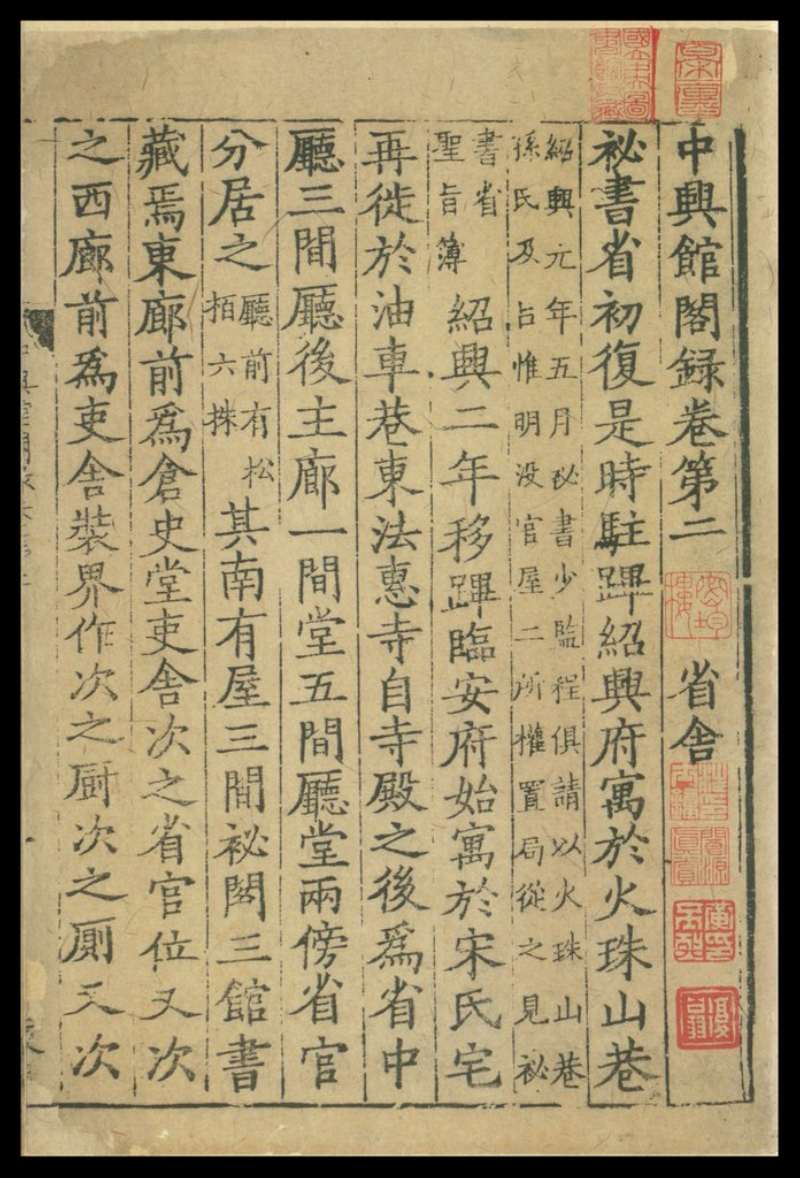 中興館閣録卷第二 省舎
祕書省初復是時駐蹕紹興府寓於火珠山巷
紹興元年五月祕書少監程俱請以火珠山巷
孫氏及吕惟明没官屋二所權置局從之見祕
書省
聖旨簿
紹興二年移蹕臨安府始寓於宋氏宅
再徙於油車巷東法惠寺自寺殿之後爲省中
廳三間廳後主廊一間堂五間廳堂兩傍省官
分居之
廳前有松
栢六株
其南有屋三間祕閣三館書
藏焉東廊前爲倉史堂吏舎次之省官位又次
之西廊前爲吏舎裝界作次之厨次之厠又次